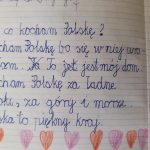 co kocham Polskę?
cham Polskę bo się w niej uro
łam. To jest jest mój dom.
cham Polskę za ładne
ki, za góry i morze.
ska to piękny kraj.